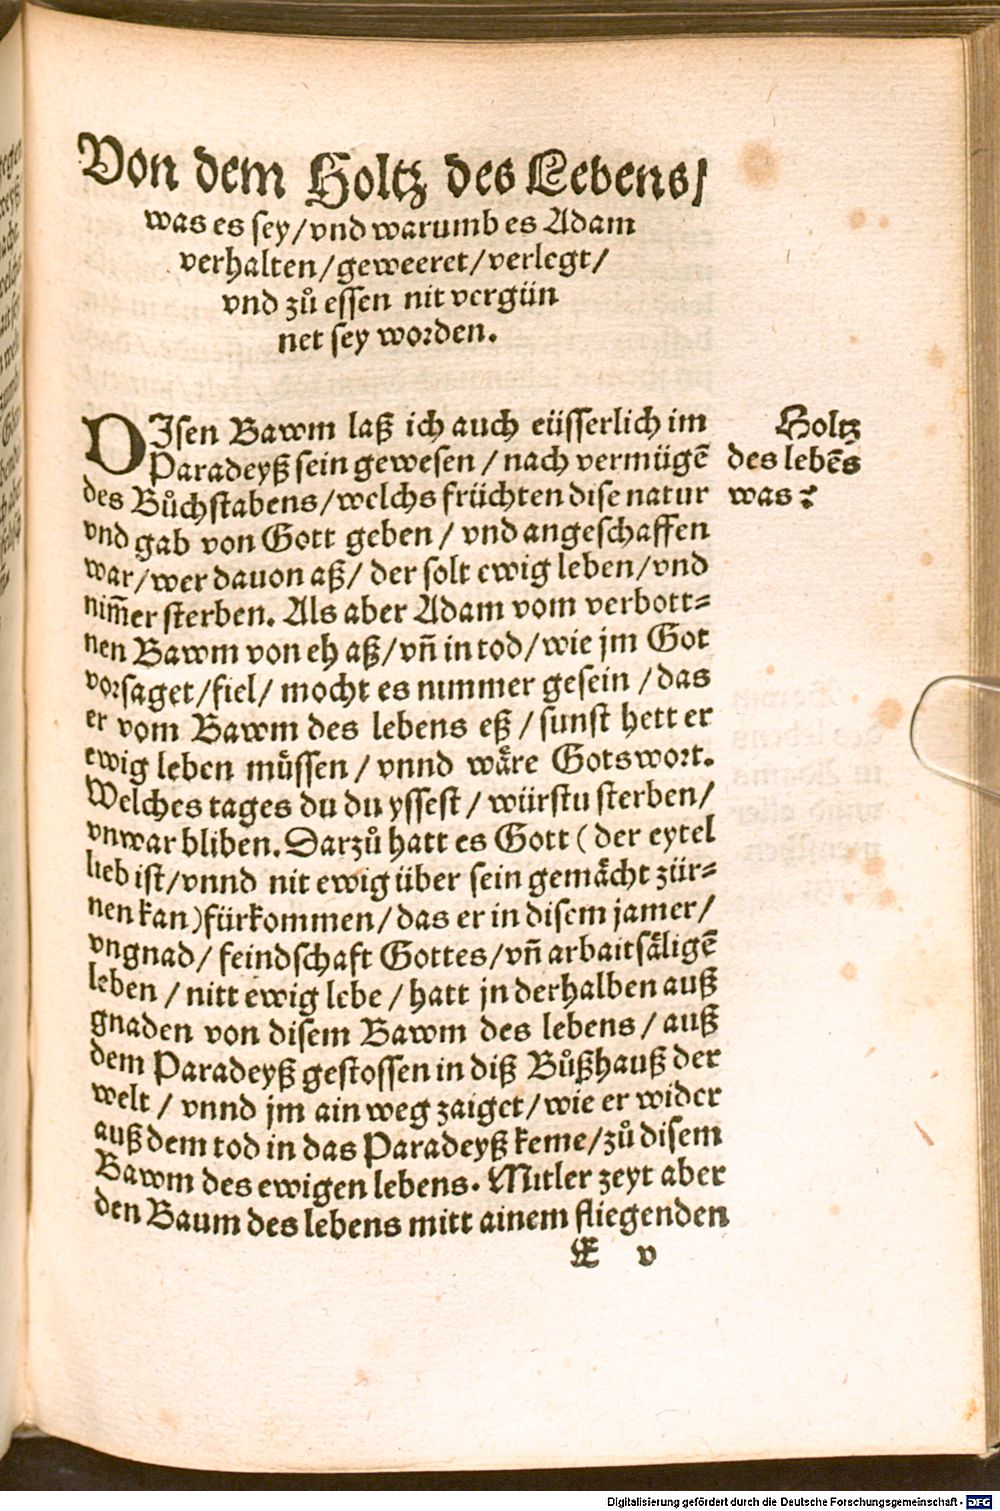 Von dem Holtz des Lebens/
was es sey/vnd warumb es Adam
verhalten/geweeret/verlegt/
vnd zů essen nit vergün
net sey worden.
DIsen Bawm laß ich auch eüsserlich im
Paradeyß sein gewesen / nach vermügē
des Bůchstabens/welchs früchten dise natur
vnd gab von Gott geben / vnd angeschaffen
war/wer dauon aß/ der solt ewig leben/vnd
nim̄er sterben. Als aber Adam vom verbott=
nen Bawm von eh aß/vn̄ in tod/wie jm Got
vorsaget/fiel/ mocht es nimmer gesein / das
er vom Bawm des lebens eß / sunst hett er
ewig leben müssen / vnnd wäre Gots wort.
Welches tages du du yssest / würstu sterben/
vnwar bliben. Darzů hatt es Gott ( der eytel
lieb ist/vnnd nit ewig über sein gemächt zür=
nen kan)fürkommen/das er in disem jamer/
vngnad/ feindschaft Gottes/vn̄ arbaitsäligē
leben / nitt ewig lebe / hatt jn derhalben auß
gnaden von disem Bawm des lebens / auß
dem Paradeyß gestossen in diß Bůßhauß der
welt / vnnd jm ain weg zaiget/wie er wider
auß dem tod in das Paradeyß keme/zů disem
Bawm des ewigen lebens. Mitler zeyt aber
den Baum des lebens mitt ainem fliegenden
E v
Holtz
des lebēs
was?
Digitalisierung gefördert durch die Deutsche Forschungsgemeinschaft - DFG